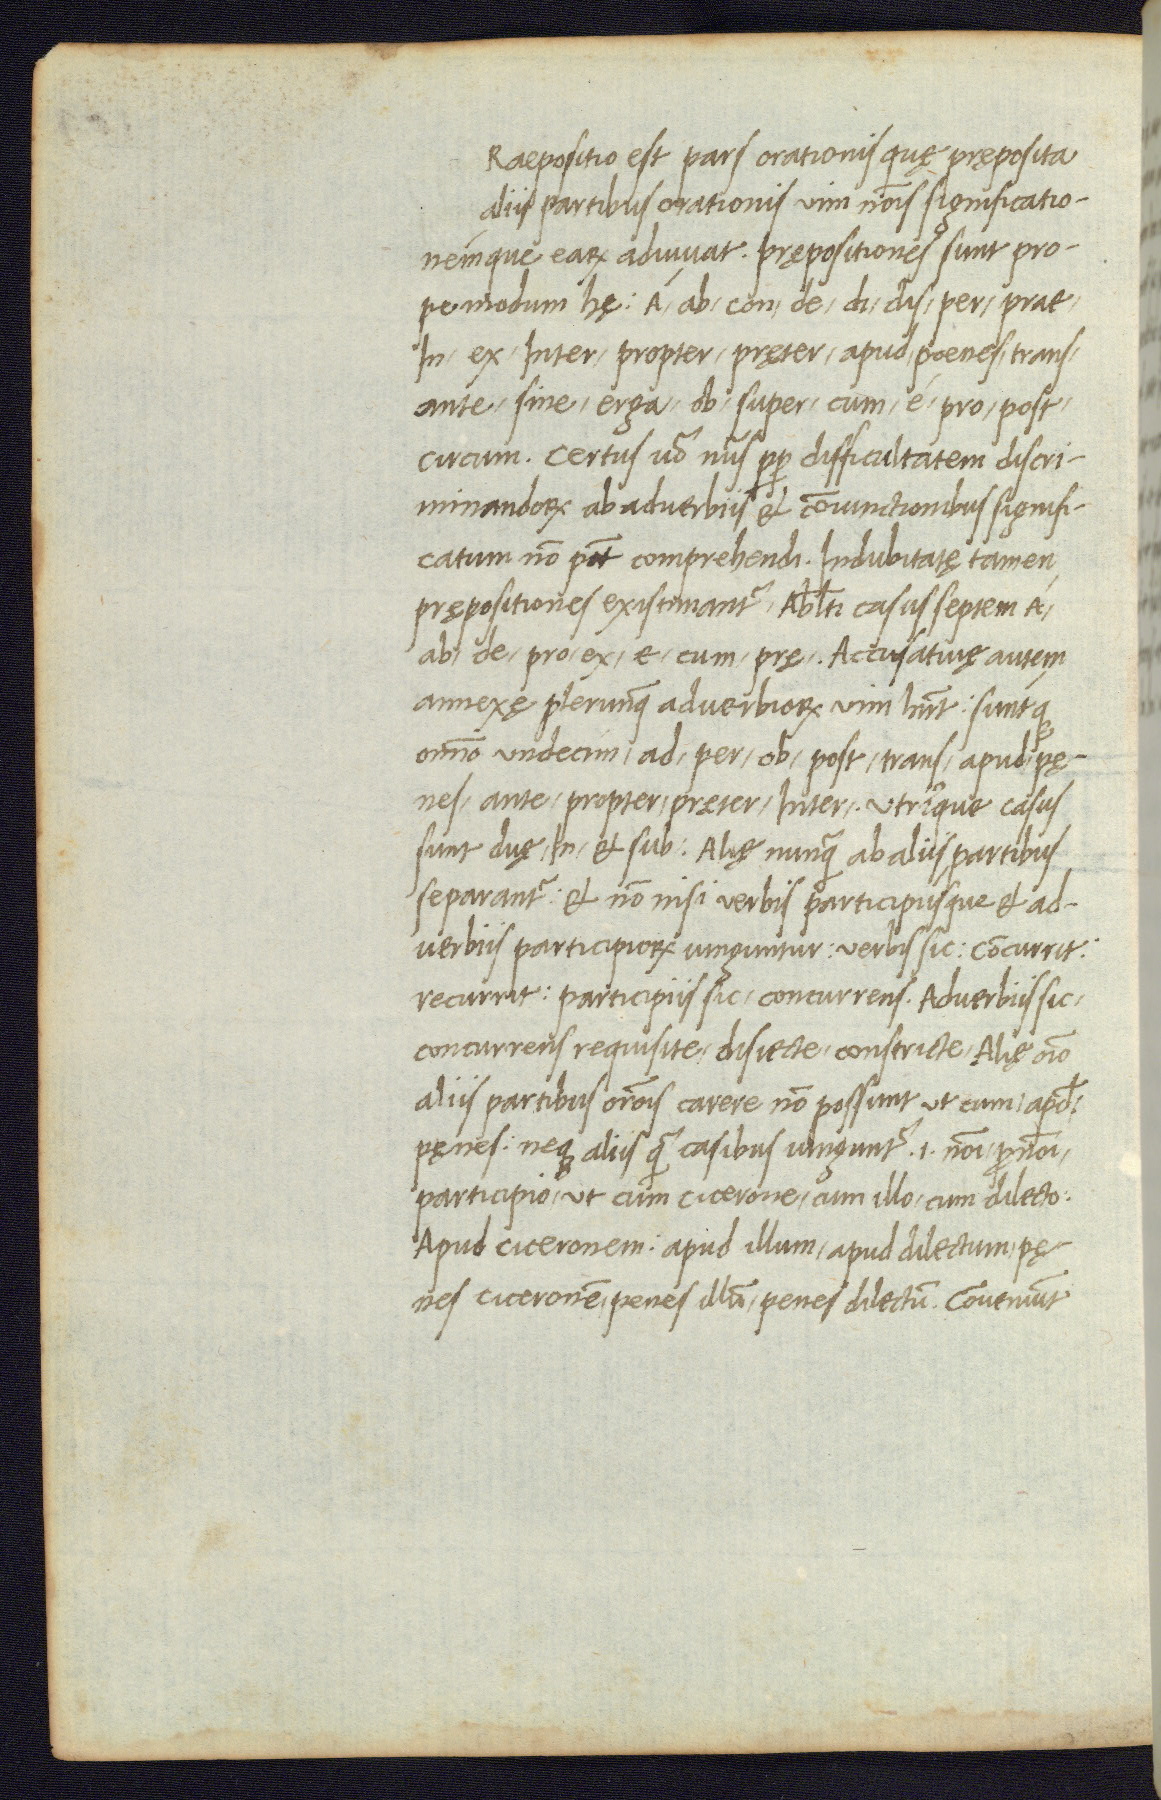 Raepositio est pars orationis quę pręposita
aliis partibus orationis vim nōis significatio-
nemque earꝝ adiuuat. Prępositiones sunt pro-
pe modum hę: A, ab, con, de, di, dis, per, prae,
In, ex, Inter, propter, pręter, apud, poenes, trans,
ante, sine, erga, ob, super, cum, é, pro, post,
circum. Certus uō nūs ꝓp difficultatem discri-
minandorꝝ ab aduerbiis & cōiunctionibus signifi-
catum nō pōt comprehendi. Indubitatę tamen
prępositiones existimantᷣ, Ablti casus septem A,
ab, de, pro, ex, e, cum, prę. Accusatiuę autem
annexę plerunqꝫ aduerbiorꝝ vim hn̄t: suntqꝫ
om̄no vndecim, ad, per, ob, post, trans, apud, pę-
nes, ante, propter, pręter, Inter. vtrique casus
sunt duę, In, & sub: Alię nunqꝫ ab aliis partibus
separantᷣ: & nō nisi verbis participiisque & ad-
uerbiis participiorꝝ iunguntur: verbis sic: Cōcurrit:
recurrit: participiis sic, concurrens. Aduerbiis sic,
concurrens requisite, disiecte, constricte, Alię oīo
aliis partibus orōis carere nō possunt vt cum, apd̄,
pęnes: neqꝫ aliis qꝫ casibus iunguntᷣ .i. nōi, ꝓnōi,
participio, vt cum cicerone, cum illo, cum dilecto:
Apud ciceronem: apud illum, apud dilectum, pę-
nes ciceronē, penes illū, penes dilectū. Conueniūt